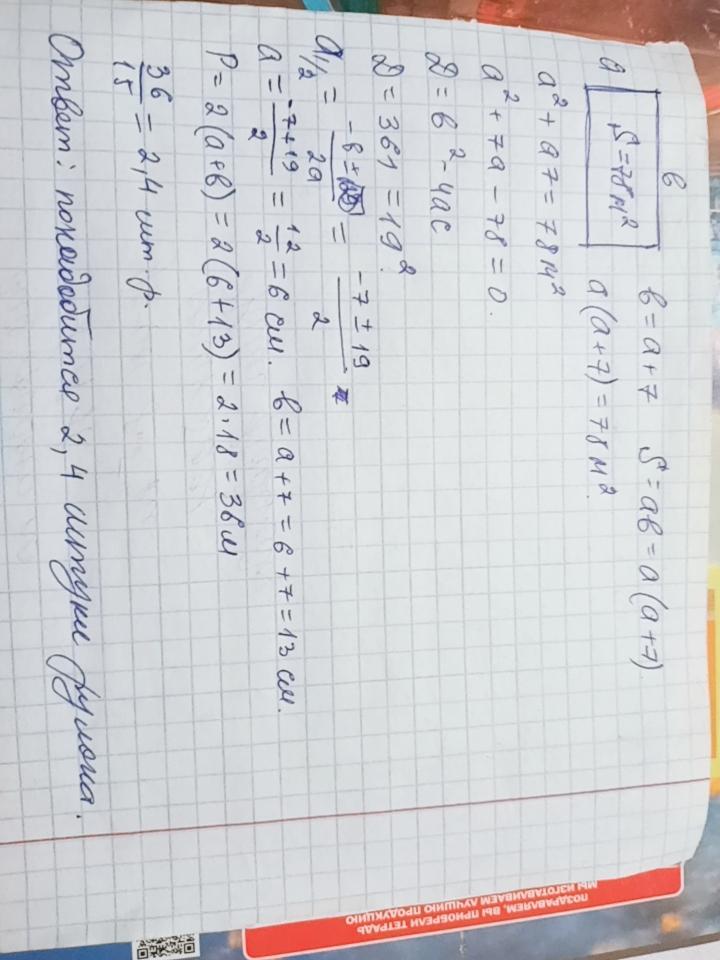 в
в = a + 7 S = aв = a (a+7)
a
S = 78 м²
a (a+7) = 78 м².
a² + a7 = 78 м²
a² + 7a - 78 = 0.
D = в² - 4ac
D = 361 = 19².
a₁/₂ = -в ± / 2a = -7 ± 19 / 2
a = -7+19 / 2 = 12/2 = 6 см. в = a + 7 = 6 + 7 = 13 см.
P = 2(a+в) = 2(6+13) = 2·18 = 36 м
36/15 = 2,4 шт. р.
Ответ: понадобится 2,4 штуки рулона.
ПОЗДРАВЛЯЕМ, ВЫ ПРИОБРЕЛИ ТЕТРАДЬ
МЫ ИЗГОТАВЛИВАЕМ ЛУЧШУЮ ПРОДУКЦИЮ